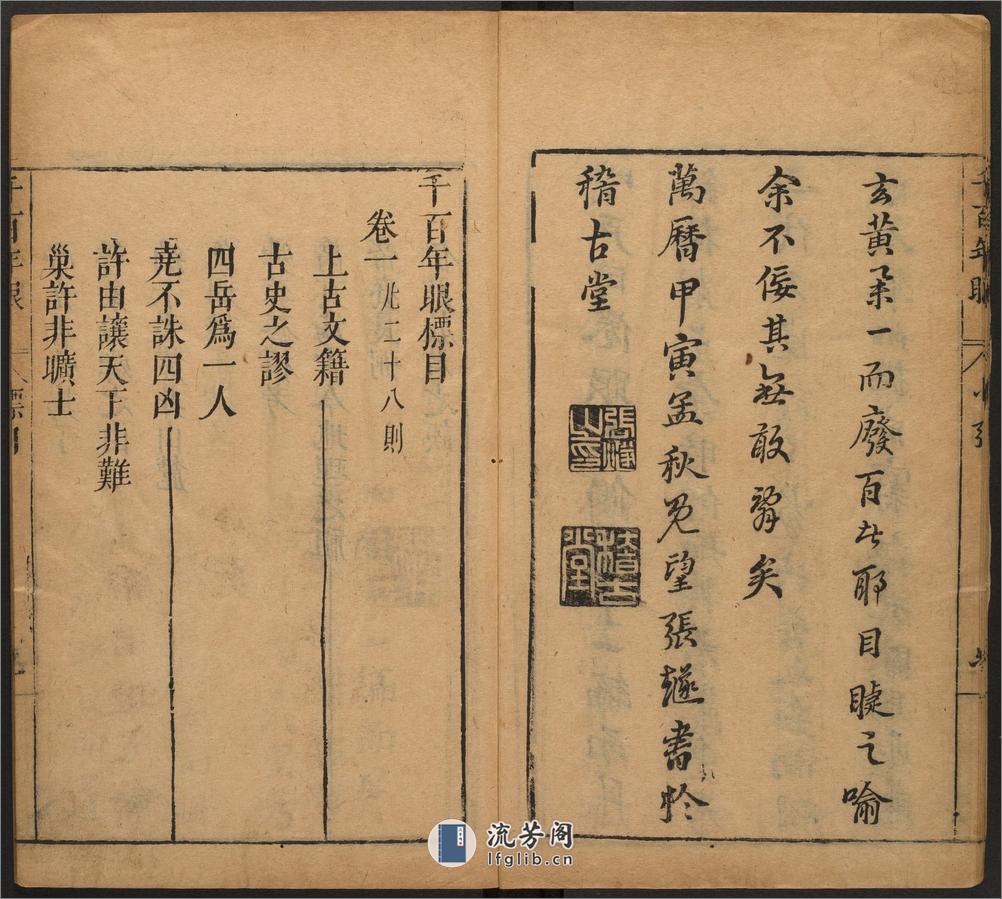 玄黃柔一而廢百者耶目睫之喻
余不佞其無敢辭矣
萬曆甲寅孟秋既望張燧書於
稽古堂
張燧
之印
稽古
堂
千百年眼 小引
千百年眼標目
卷一 共二十八則
上古文籍
古史之謬
四岳爲一人
堯不誅四凶
許由讓天下非難
巢許非曠士
千百年眼 標目
流芳阁
lfglib.cn